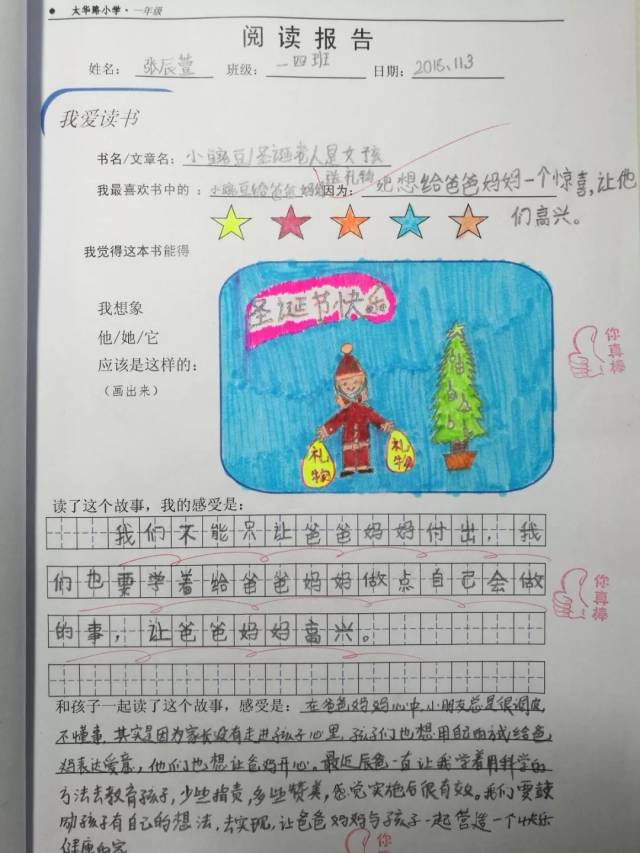 大华路小学·一年级
阅读报告
姓名: 张辰萱 班级: 一四班 日期: 2015.11.3
我爱读书
书名/文章名: 小豌豆/圣诞老人是女孩
送礼物
我最喜欢书中的: 小豌豆给爸爸妈妈 因为: 她想给爸爸妈妈一个惊喜,让他
们高兴。
我觉得这本书能得
圣诞节快乐
我想象
他/她/它
应该是这样的:
(画出来)
你真棒
礼物
礼物
读了这个故事,我的感受是:
我们不能只让爸爸妈妈付出,我
们也要学着给爸爸妈妈做点自己会做
你真棒
的事,让爸爸妈妈高兴。
和孩子一起读了这个故事,感受是: 在爸爸妈妈心中,小朋友总是很调皮,
不懂事,其实是因为家长没有走进孩子心里,孩子们也想用自己的方式给爸
妈表达爱意,他们也想让爸妈开心。最近辰爸一直让我学着用科学的
方法去教育孩子,少些指责,多些赞美,感觉实施后很有效。我们要鼓
励孩子有自己的想法,去实现,让爸爸妈妈与孩子一起营造一个快乐
健康的家
你